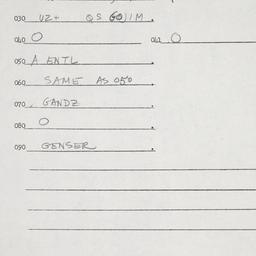 030 UZ+ QS GO)/M.
040 O 041 O
050 A ENTL
060 SAME AS 050
070. GANDZ
080 O
090 GENSER